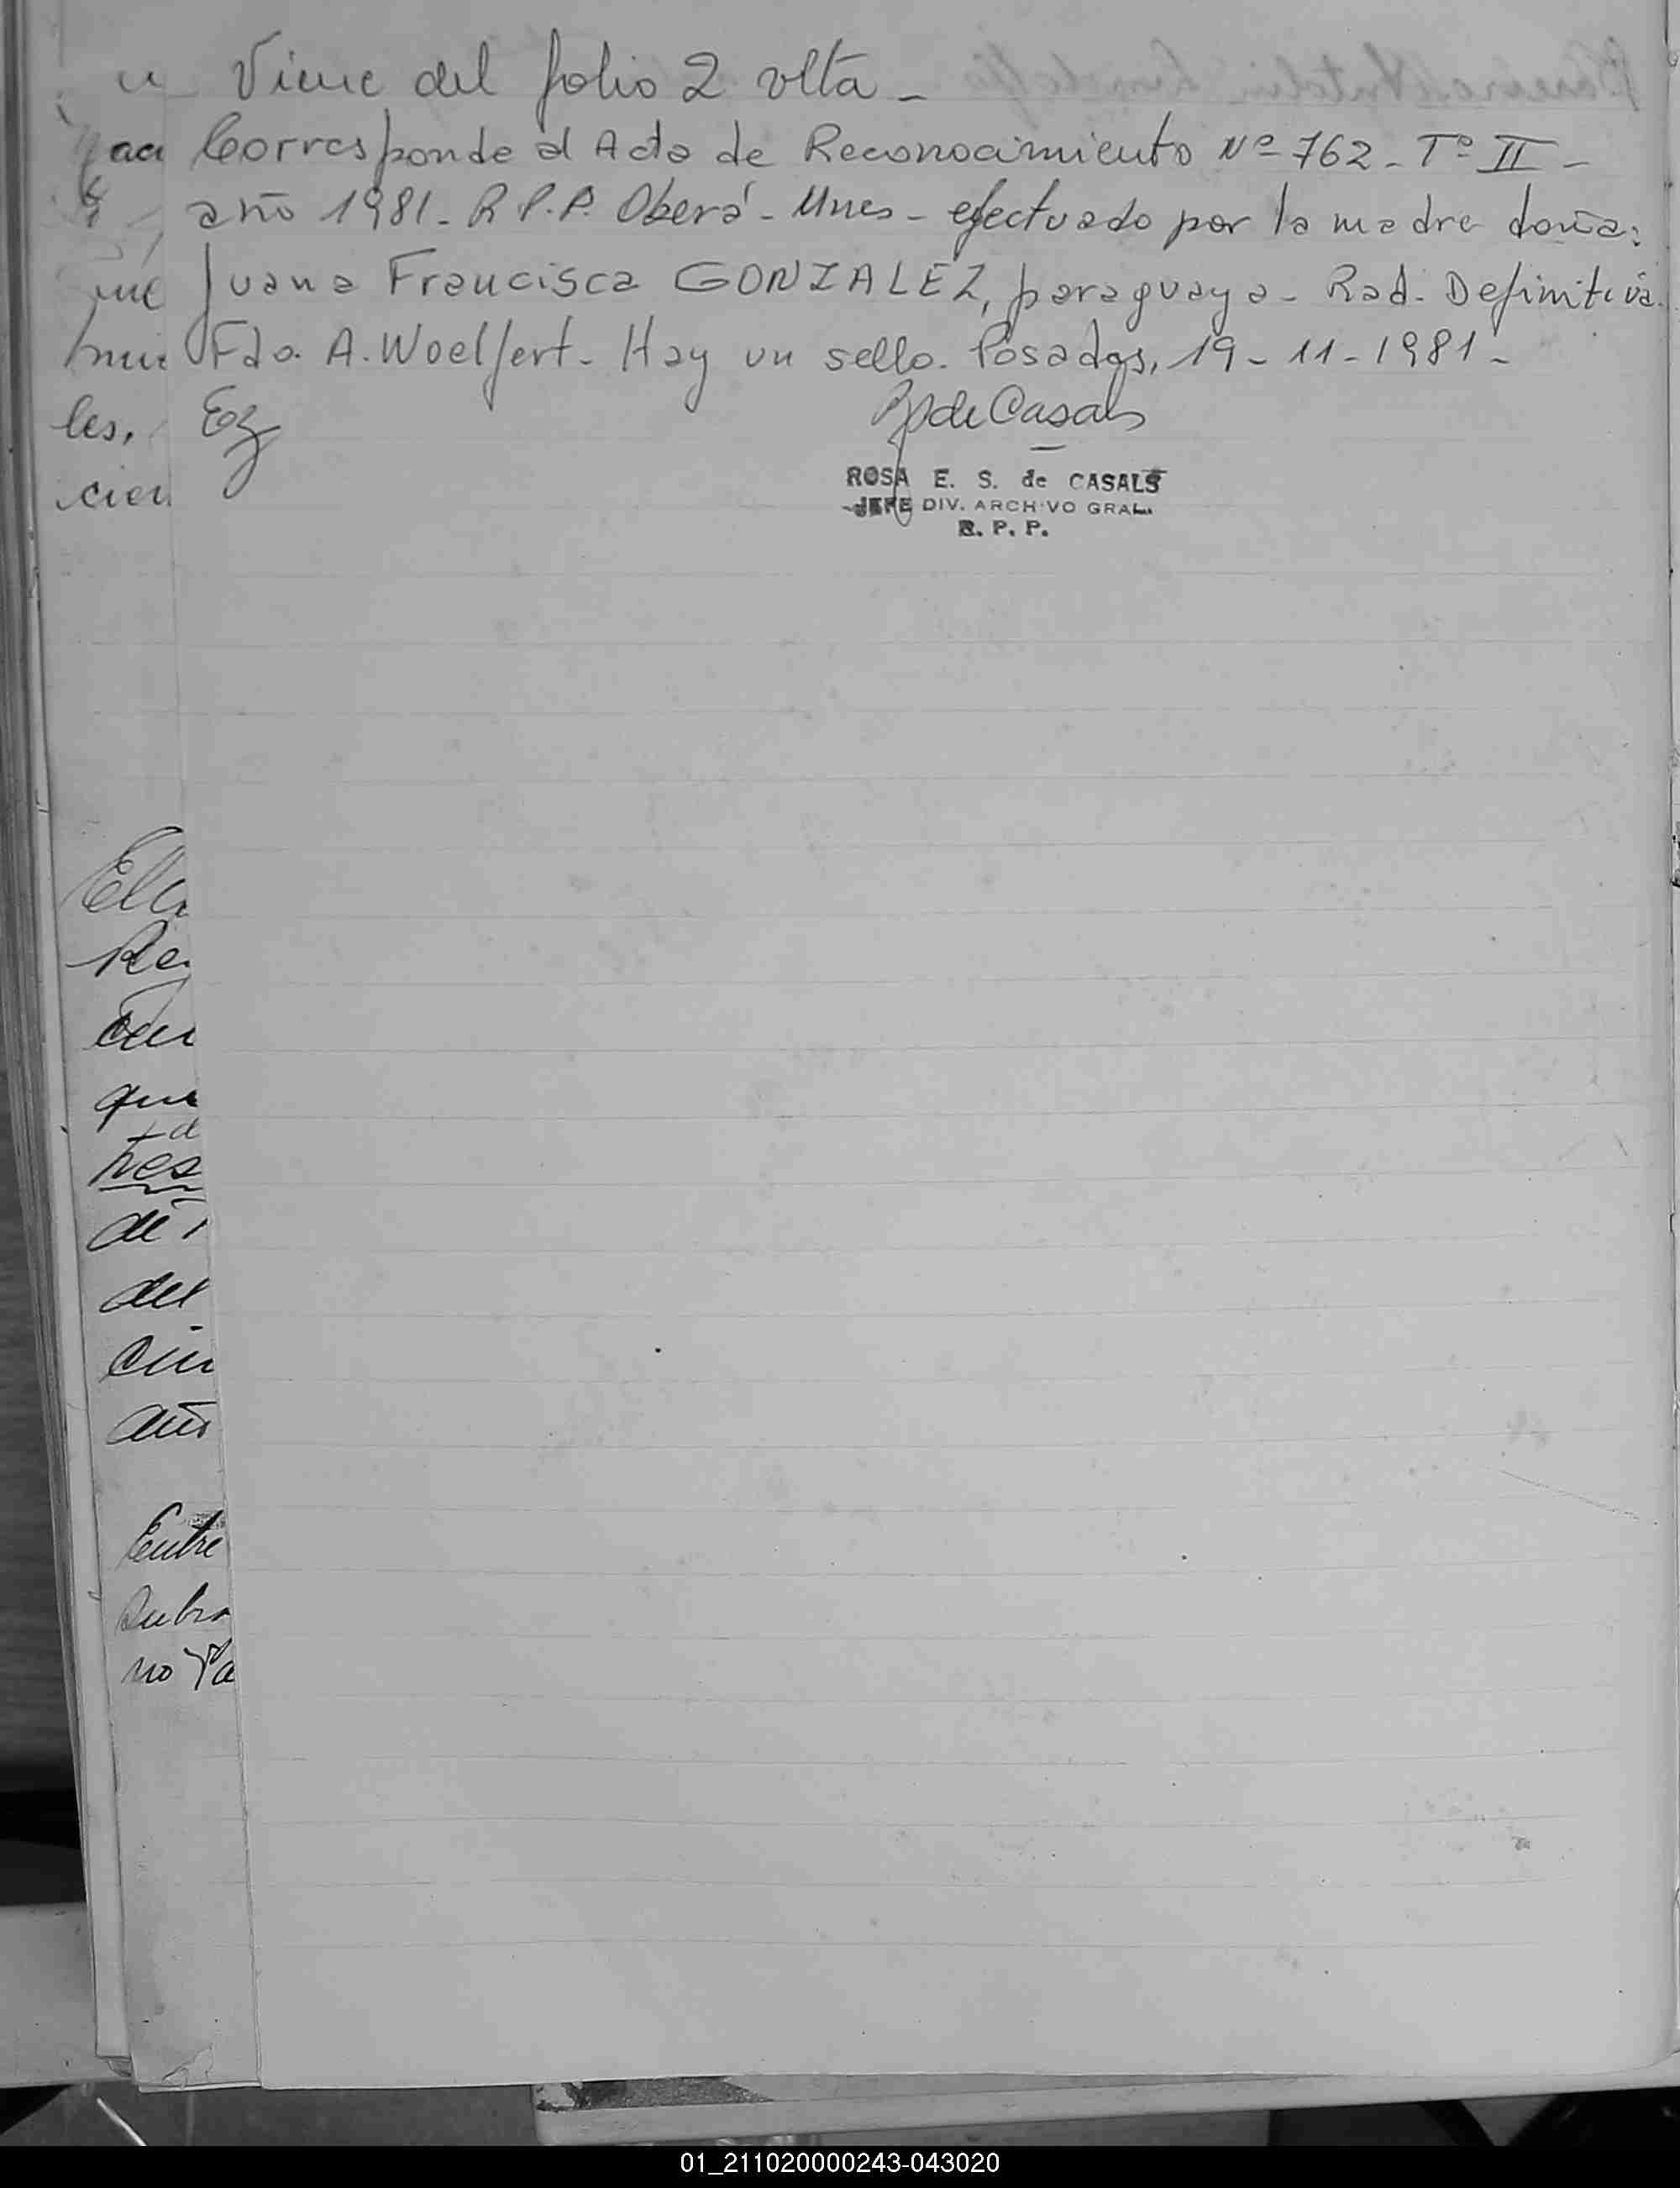 Viene del folio 2 vlta -
Corresponde al Acta de Reconocimiento Nº 762 - Tº II -
año 1981 - R P.P. Oberá - Mnes - efectuado por la madre doña:
Juana Francisca GONZALEZ, paraguaya - Rad. Definitiva.
Fdo. A. Woelfert - Hay un sello. Posadas, 19 - 11 - 1981 -
de Casals
ROSA E. S. de CASALS
JEFE DIV. ARCHIVO GRAL.
R. P. P.
les,
Ella
que
tres
de
del
Entre
no
01_211020000243-043020